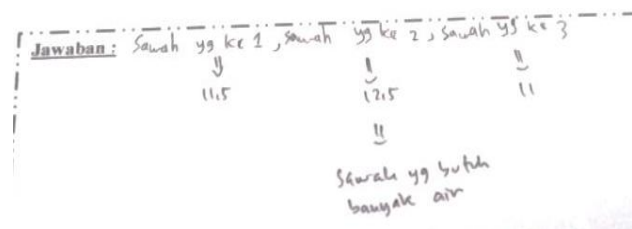 Jawaban : Sawah yg ke 1, sawah yg ke 2, sawah yg ke 3
⇓ ⇓ ⇓
11.5 12.5 11
⇓
Sawah yg butuh
banyak air